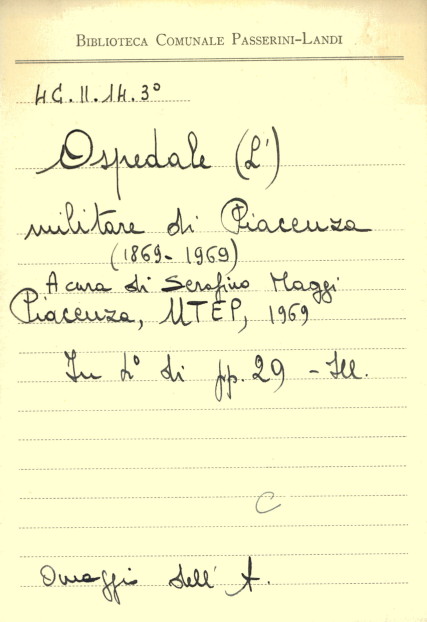 BIBLIOTECA COMUNALE PASSERINI-LANDI
4C.II.14.3°
Ospedale (L')
militare di Piacenza
(1869-1969)
A cura di Serafino Maggi
Piacenza, UTEP, 1969
In 4° di pp. 29 - Ill.
C
Omaggio dell' A.